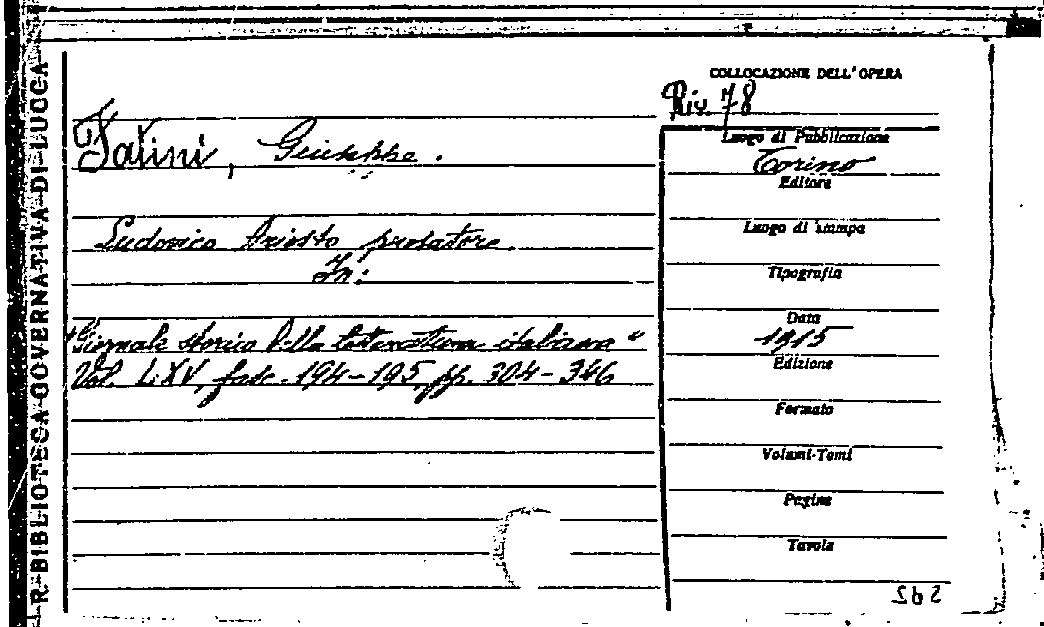 R. BIBLIOTECA GOVERNATIVA DI LUCCA
COLLOCAZIONE DELL' OPERA
Riv. 78
Fatini, Giuseppe.
Luogo di Pubblicazione
Torino
Editore
Ludovico Ariosto prosatore.
Luogo di stampa
In:
Tipografia
Data
"Giornale storico della letteratura italiana"
1915
Edizione
Vol. LXV, fasc. 194-195, pp. 304-346
Formato
Volumi-Tomi
Pagine
Tavole